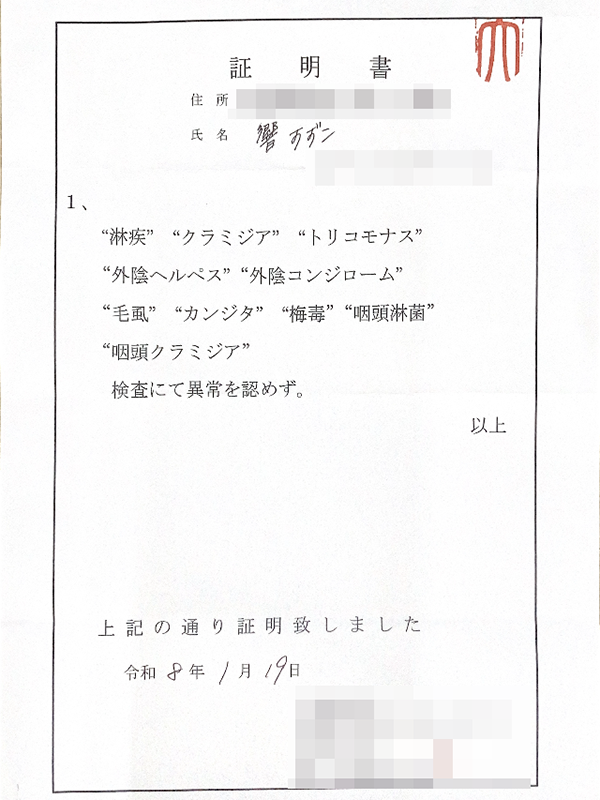 証明書
住所
氏名 響 すずン
1、
“淋疾” “クラミジア” “トリコモナス”
“外陰ヘルペス” “外陰コンジローム”
“毛虱” “カンジタ” “梅毒” “咽頭淋菌”
“咽頭クラミジア”
検査にて異常を認めず。
以上
上記の通り証明致しました
令和8年1月19日